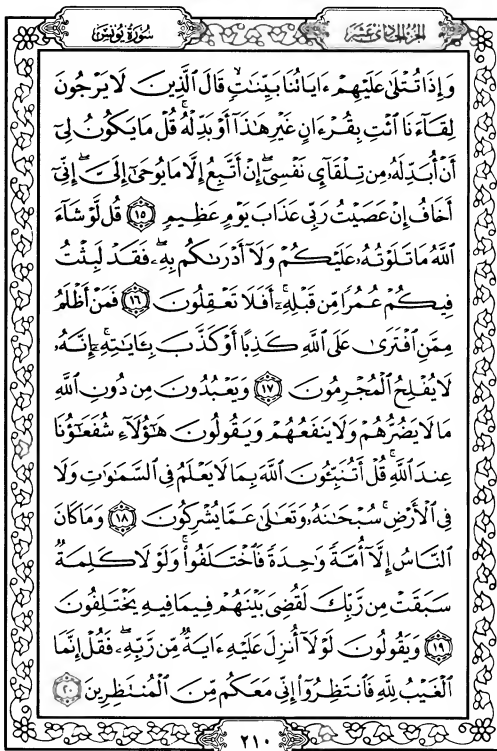 الجزء الحادي عشر
سورة يونس
وَإِذَا تُتْلَىٰ عَلَيْهِمْ ءَايَاتُنَا بَيِّنَٰتٍ ۙ قَالَ ٱلَّذِينَ لَا يَرْجُونَ
لِقَآءَنَا ٱئْتِ بِقُرْءَانٍ غَيْرِ هَٰذَآ أَوْ بَدِّلْهُ ۚ قُلْ مَا يَكُونُ لِىٓ
أَنْ أُبَدِّلَهُۥ مِن تِلْقَآئِ نَفْسِىٓ ۖ إِنْ أَتَّبِعُ إِلَّا مَا يُوحَىٰٓ إِلَىَّ ۖ إِنِّىٓ
أَخَافُ إِنْ عَصَيْتُ رَبِّى عَذَابَ يَوْمٍ عَظِيمٍ ١٥ قُل لَّوْ شَآءَ
ٱللَّهُ مَا تَلَوْتُهُۥ عَلَيْكُمْ وَلَآ أَدْرَىٰكُم بِهِۦ ۖ فَقَدْ لَبِثْتُ
فِيكُمْ عُمُرًا مِّن قَبْلِهِۦٓ ۚ أَفَلَا تَعْقِلُونَ ١٦ فَمَنْ أَظْلَمُ
مِمَّنِ ٱفْتَرَىٰ عَلَى ٱللَّهِ كَذِبًا أَوْ كَذَّبَ بِـَٔايَٰتِهِۦٓ ۚ إِنَّهُۥ
لَا يُفْلِحُ ٱلْمُجْرِمُونَ ١٧ وَيَعْبُدُونَ مِن دُونِ ٱللَّهِ
مَا لَا يَضُرُّهُمْ وَلَا يَنفَعُهُمْ وَيَقُولُونَ هَٰٓؤُلَآءِ شُفَعَٰٓؤُنَا
عِندَ ٱللَّهِ ۚ قُلْ أَتُنَبِّـُٔونَ ٱللَّهَ بِمَا لَا يَعْلَمُ فِى ٱلسَّمَٰوَٰتِ وَلَا
فِى ٱلْأَرْضِ ۚ سُبْحَٰنَهُۥ وَتَعَٰلَىٰ عَمَّا يُشْرِكُونَ ١٨ وَمَا كَانَ
ٱلنَّاسُ إِلَّآ أُمَّةً وَٰحِدَةً فَٱخْتَلَفُوا۟ ۚ وَلَوْلَا كَلِمَةٌ
سَبَقَتْ مِن رَّبِّكَ لَقُضِىَ بَيْنَهُمْ فِيمَا فِيهِ يَخْتَلِفُونَ
١٩ وَيَقُولُونَ لَوْلَآ أُنزِلَ عَلَيْهِ ءَايَةٌ مِّن رَّبِّهِۦ ۖ فَقُلْ إِنَّمَا
ٱلْغَيْبُ لِلَّهِ فَٱنتَظِرُوٓا۟ إِنِّى مَعَكُم مِّنَ ٱلْمُنتَظِرِينَ ٢٠
٢١٠